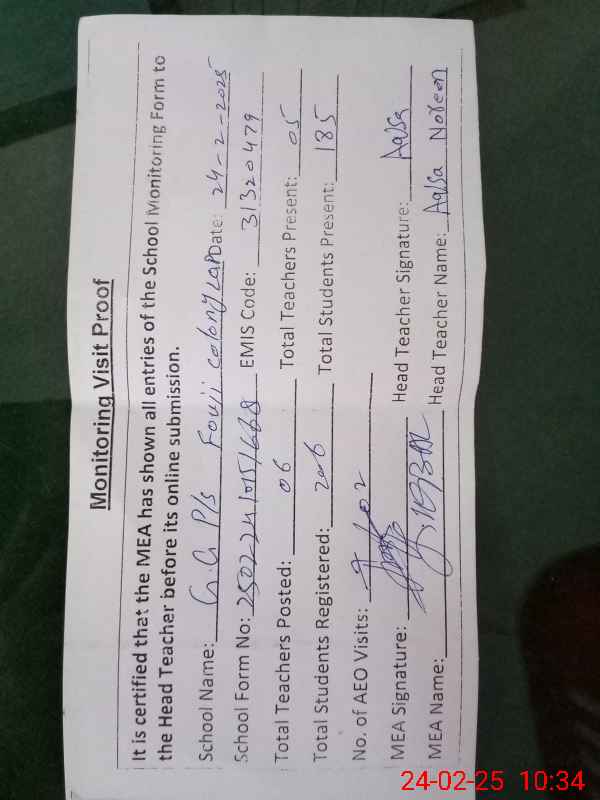 Monitoring Visit Proof
It is certified that the MEA has shown all entries of the School Monitoring Form to
the Head Teacher before its online submission.
School Name: G.G P/s Fouji colony LAP Date: 24-2-2025
School Form No: EMIS Code: 31320479
Total Teachers Posted: 06 Total Teachers Present: 05
Total Students Registered: 206 Total Students Present: 185
No. of AEO Visits: 02
MEA Signature: Head Teacher Signature: Aqlsa
MEA Name: Head Teacher Name: Aqlsa Noreen
24-02-25 10:34